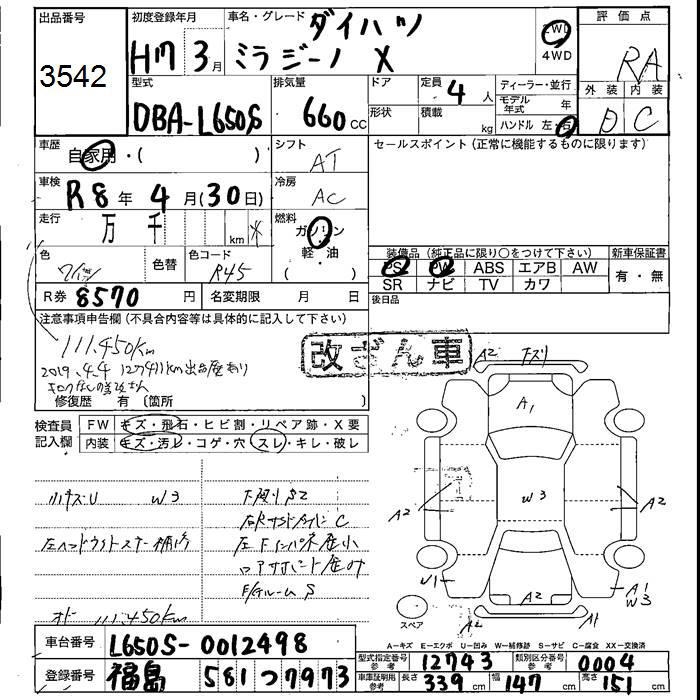 出品番号
3542
初度登録年月
H17 3月
車名・グレード
ダイハツ
ミラジーノ X
2WD
4WD
評価点
RA
外装 内装
D C
型式
DBA-L650S
排気量
660 cc
ドア
形状
定員
4 人
積載
kg
ディーラー・並行
モデル年式 年
ハンドル 左・右
車歴
自家用・( )
シフト
AT
セールスポイント(正常に機能するものに限ります)
車検
R8年 4月(30日)
冷房
AC
走行
万 千 km
燃料
ガソリン
軽・油
( )
色
ワイン
色替
色コード
R45
装備品(純正品に限り○をつけて下さい)
PS PW ABS エアB AW
SR ナビ TV カワ
新車保証書
有・無
R券 8570 円
名変期限 月 日
後日品
注意事項申告欄(不具合内容等は具体的に記入して下さい)
111.450km
2019.4.4 127411km出品歴あり
改ざん車
修復歴 有 〔箇所 〕
検査員記入欄
FW キズ・飛石・ヒビ割・リペア跡・X要
内装 キズ・汚レ・コゲ・穴 スレ・キレ・破レ
小キズU W3
下廻りS2
左ヘッドライトステー補修
111.450km
A2
下スリ
A1
A2
W3
A2
U1
A2
A1
W3
A1
スペア
A−キズ E−エクボ U−凹み W−補修跡 S−サビ C−腐食 XX−交換済
車台番号 L650S-0012498
登録番号 福島 581 つ 7973
型式指定番号参考 12743
類別区分番号参考 0004
車庫証明用参考 長さ 339 cm 幅 147 cm 高さ 151 cm